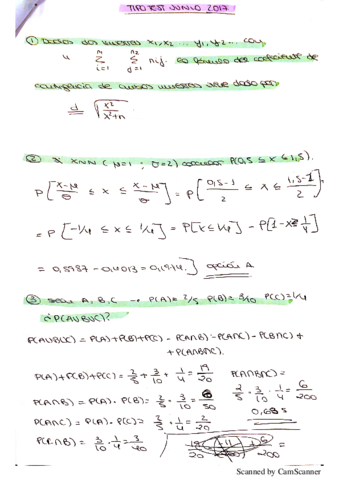 TIPO TEST JUNIO 2017
① Dadas dos muestras x1, x2 ... y1, y2 ... con
n Σ i=1 n2 Σ j=1 nij. la fórmula del coeficiente de
contingencia de dos muestras viene dado por
d √(x²/(x²+n))
② X NN (μ=1 ; σ=2) P(0,5 ≤ x ≤ 1,5).
P[(x-μ)/σ ≤ x ≤ (x-μ)/σ] = P[(0,5-1)/2 ≤ x ≤ (1,5-1)/2] =
= P[-1/4 ≤ x ≤ 1/4] = P[x ≤ 1/4] - P[1-x 1/4]
= 0,5987 - 0,4013 = 0,1974. opción A
③ Sean A, B, C → P(A)=2/5 P(B)=3/10 P(C)=1/4
¿P(AUBUC)?
P(AUBUC) = P(A)+P(B)+P(C) - P(A∩B) - P(A∩C) - P(B∩C) +
+ P(A∩B∩C).
P(A)+P(B)+P(C) = 2/5 + 3/10 + 1/4 = 19/20 P(A∩B∩C) =
P(A∩B) = P(A) · P(B) = 2/5 · 3/10 = 6/50 2/5 · 3/10 · 1/4 = 6/200
P(A∩C) = P(A) · P(C) = 2/5 · 1/4 = 2/20 0,685
P(C∩B) = 3/10 · 1/4 = 3/40
Scanned by CamScanner